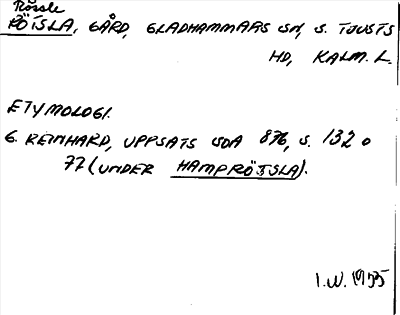 Rössle
RÖTSLA, GÅRD, GLADHAMMARS SN, S. TJUSTS
HD, KALM. L.
ETYMOLOGI.
G. REINHARD, UPPSATS SDA 876, S. 132 o
77 (UNDER HAMPRÖTSLA).
I.W. 1955